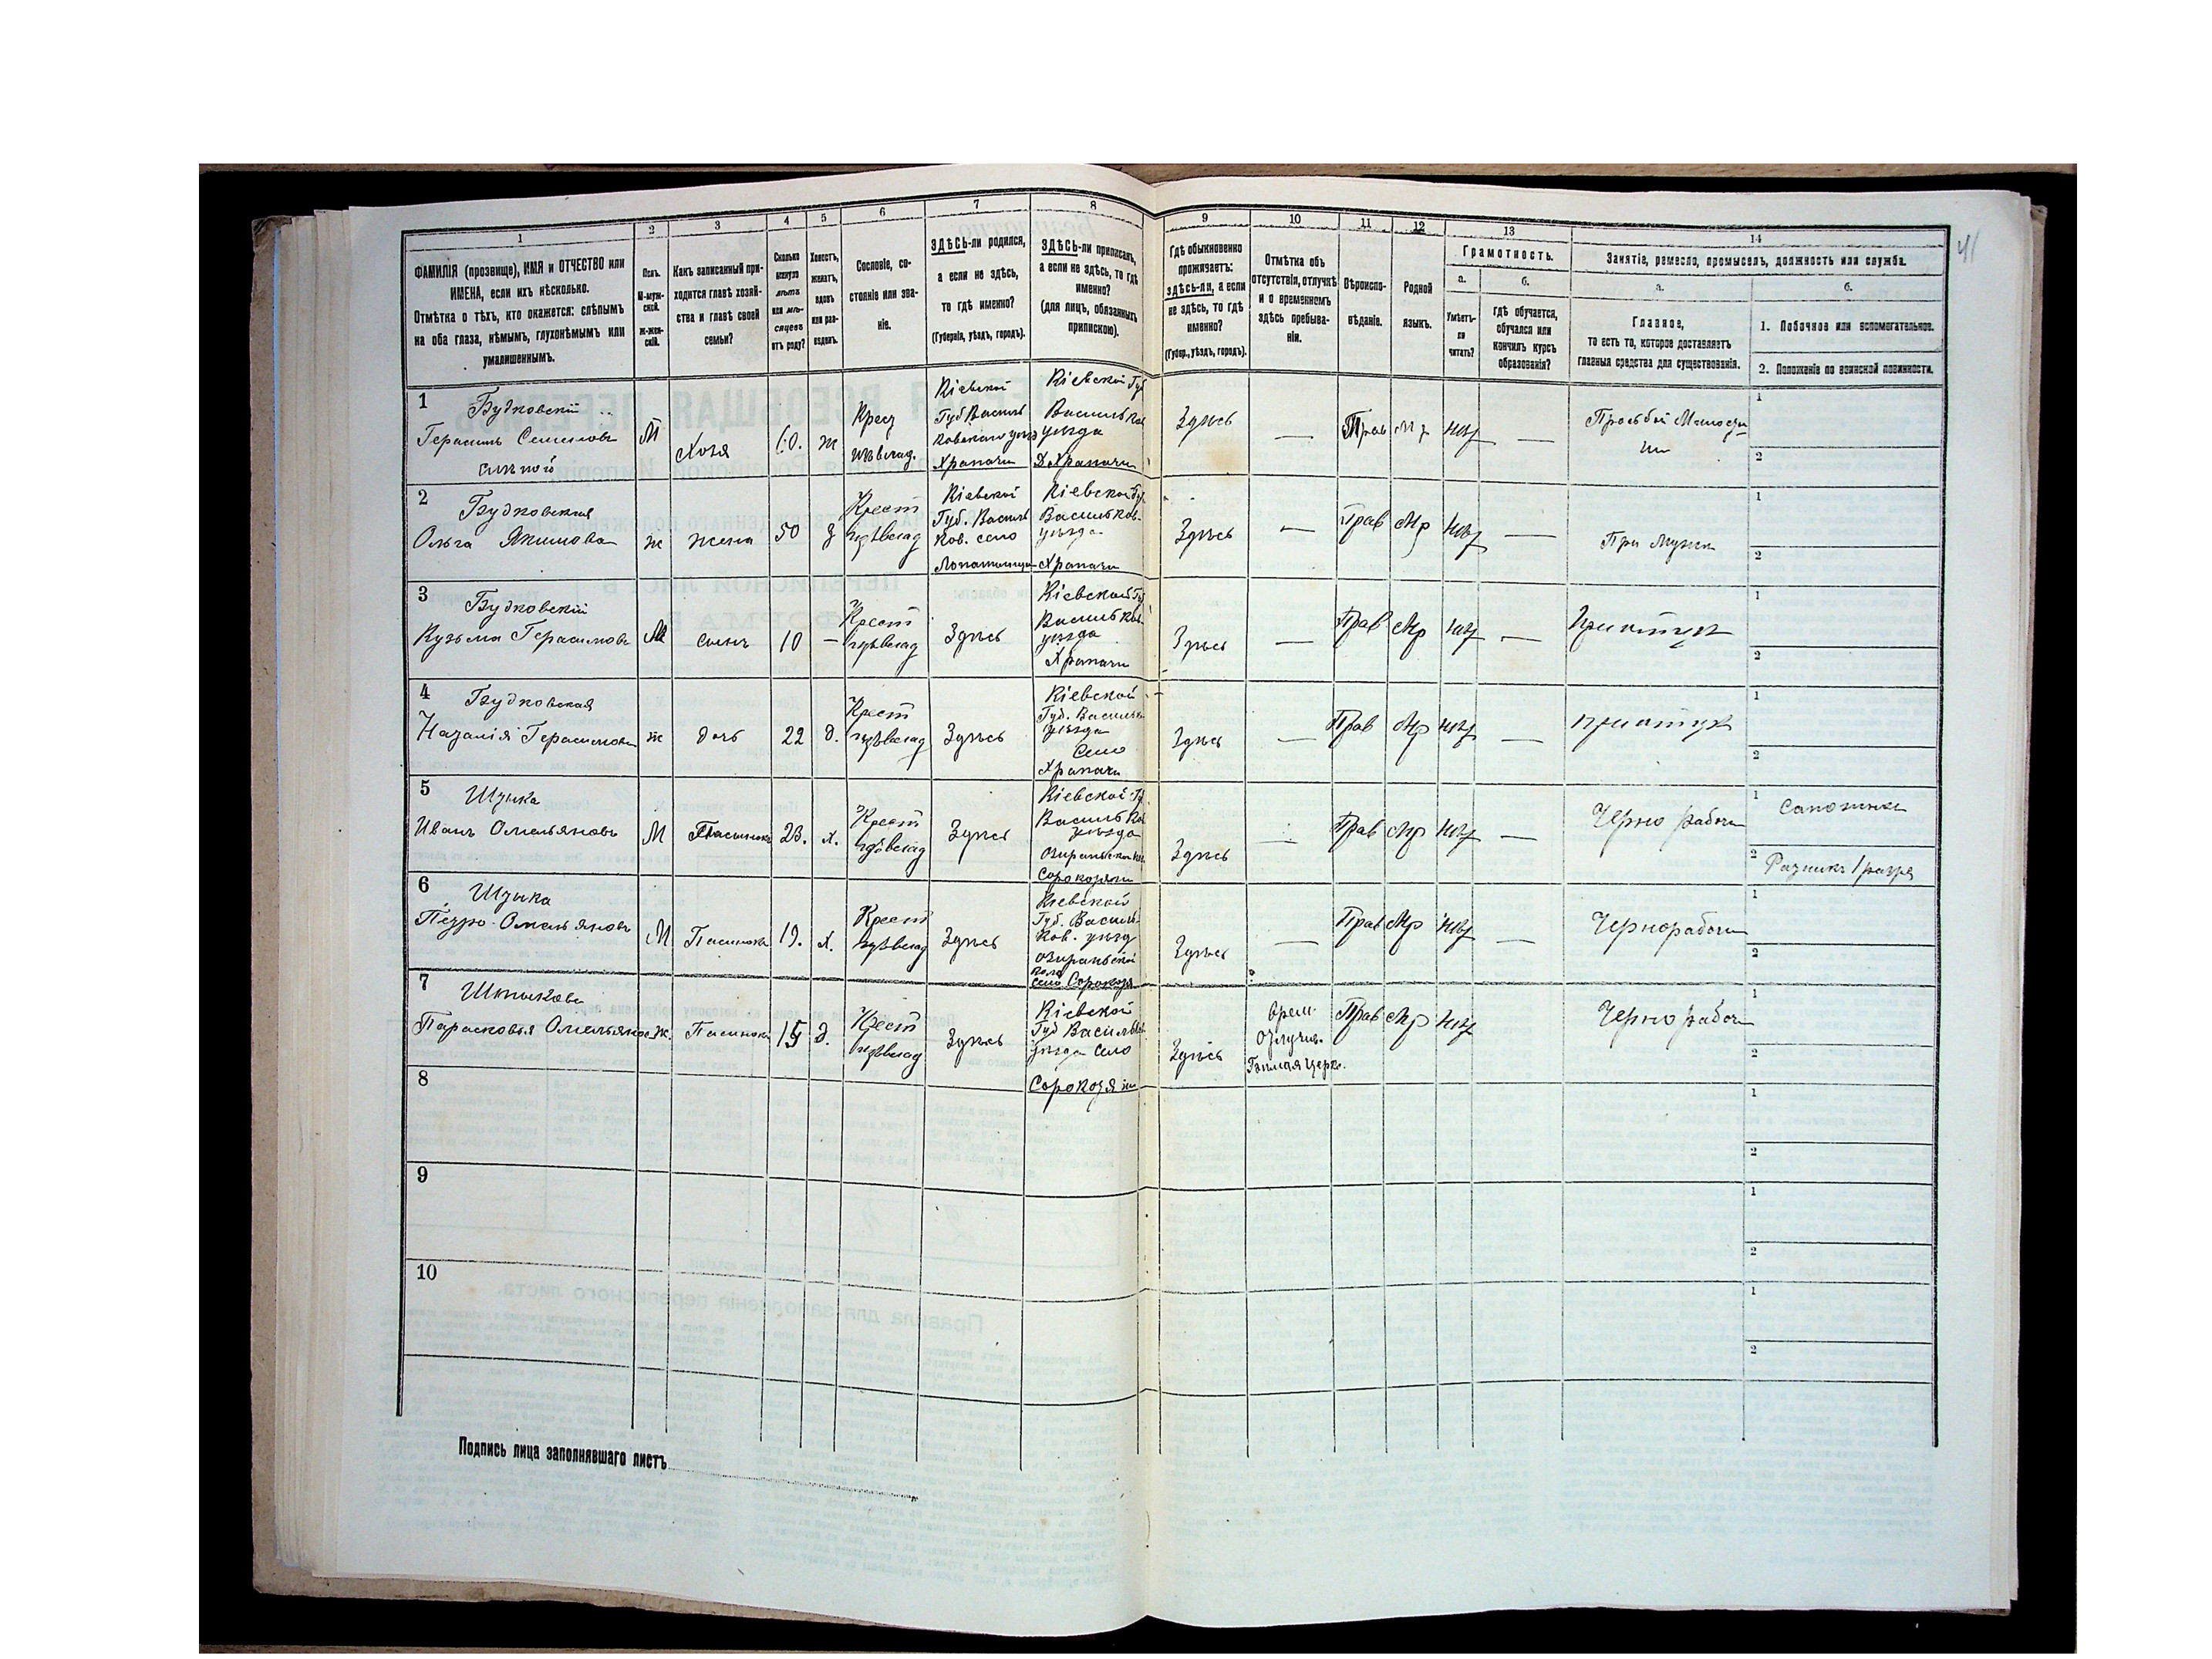 41
1 2 3 4 5 6 7 8 9 10 11 12 13 14
ФАМИЛІЯ (прозвище), ИМЯ и ОТЧЕСТВО или
ИМЕНА, если ихъ нѣсколько.
Отмѣтка о тѣхъ, кто окажется: слѣпымъ
на оба глаза, нѣмымъ, глухонѣмымъ или
умалишеннымъ.
Полъ.
М-муж-
ской.
Ж-жен-
скій.
Какъ записанный при-
ходится главѣ хозяй-
ства и главѣ своей
семьи?
Сколько
минуло
лѣтъ
или мѣ-
сяцевъ
отъ роду?
Холостъ,
женатъ,
вдовъ
или раз-
веденъ.
Сословіе, со-
стояніе или зва-
ніе.
ЗДѢСЬ-ли родился,
а если не здѣсь,
то гдѣ именно?
(Губернія, уѣздъ, городъ).
ЗДѢСЬ-ли приписанъ,
а если не здѣсь, то гдѣ
именно?
(для лицъ, обязанныхъ
припискою).
Гдѣ обыкновенно
проживаетъ:
здѣсь-ли, а если
не здѣсь, то гдѣ
именно?
(Губер., уѣздъ, городъ).
Отмѣтка объ
отсутствіи, отлучкѣ
и о временномъ
здѣсь пребыва-
ніи.
Вѣроиспо-
вѣданіе.
Родной
языкъ.
Грамотность.
а.
Умѣетъ-
ли
читать?
б.
Гдѣ обучается,
обучался или
кончилъ курсъ
образованія?
Занятіе, ремесло, промыселъ, должность или служба.
а.
Главное,
то есть то, которое доставляетъ
главныя средства для существованія.
б.
1. Побочное или вспомогательное.
2. Положеніе по воинской повинности.
1
Будковскій
Герасимъ Семеновъ
слѣпой
М
Хозя
60.
ж
Крест
Кіевской
Губ Василь
ковскаго уѣзд
Храпачи
Кіевской Губ
Васильков
уѣзда
Храпачи
Здѣсь
—
Прав
Мр
нѣт
—
1
2
2
Будковская
Ольга Якимова
ж
жена
50
з
Крест
Кіевской
Губ. Василь
ков. село
Кіевской Губ
Васильков.
уѣзда
Храпачи
Здѣсь
—
Прав
Мр
нѣт
—
При мужи
1
2
3
Будковскій
Кузьма Герасимовъ
М
сынъ
10
—
Крест
Здѣсь
Кіевской Губ
Васильков
уѣзда
Храпачи
Здѣсь
—
Прав
Мр
нѣт
—
при отцѣ
1
2
4
Будковская
Наталія Герасимова
ж
дочь
22
д.
Крест
Здѣсь
Кіевской
Губ. Васильк
уѣзда
Село
Храпачи
Здѣсь
—
Прав
Мр
нѣт
—
при отцѣ
1
2
5
Шпыка
Иванъ Омельяновъ
М
Пасынокъ
23.
х.
Крест
Здѣсь
Кіевской Гу
Васильков
уѣзда
Здѣсь
—
Прав
Мр
нѣт
—
Черно рабочи
1
Сапожник
2
Ратникъ 1 разря
6
Шпыка
Петро Омельяновъ
М
Пасынокъ
19.
х.
Крест
Здѣсь
Кіевской
Губ. Василь-
ков. уѣзд
Село
Здѣсь
—
Прав
Мр
нѣт
—
Чернорабочи
1
2
7
Парасковья Омельянова
ж.
15
д.
Крест
Здѣсь
Кіевской
Губ Васильков
уѣзда село
Здѣсь
врем.
отлучив.
Бѣлая Церк.
Прав
Мр
нѣт
Черно рабочи
1
2
8
1
2
9
1
2
10
1
2
Подпись лица заполнявшаго листъ